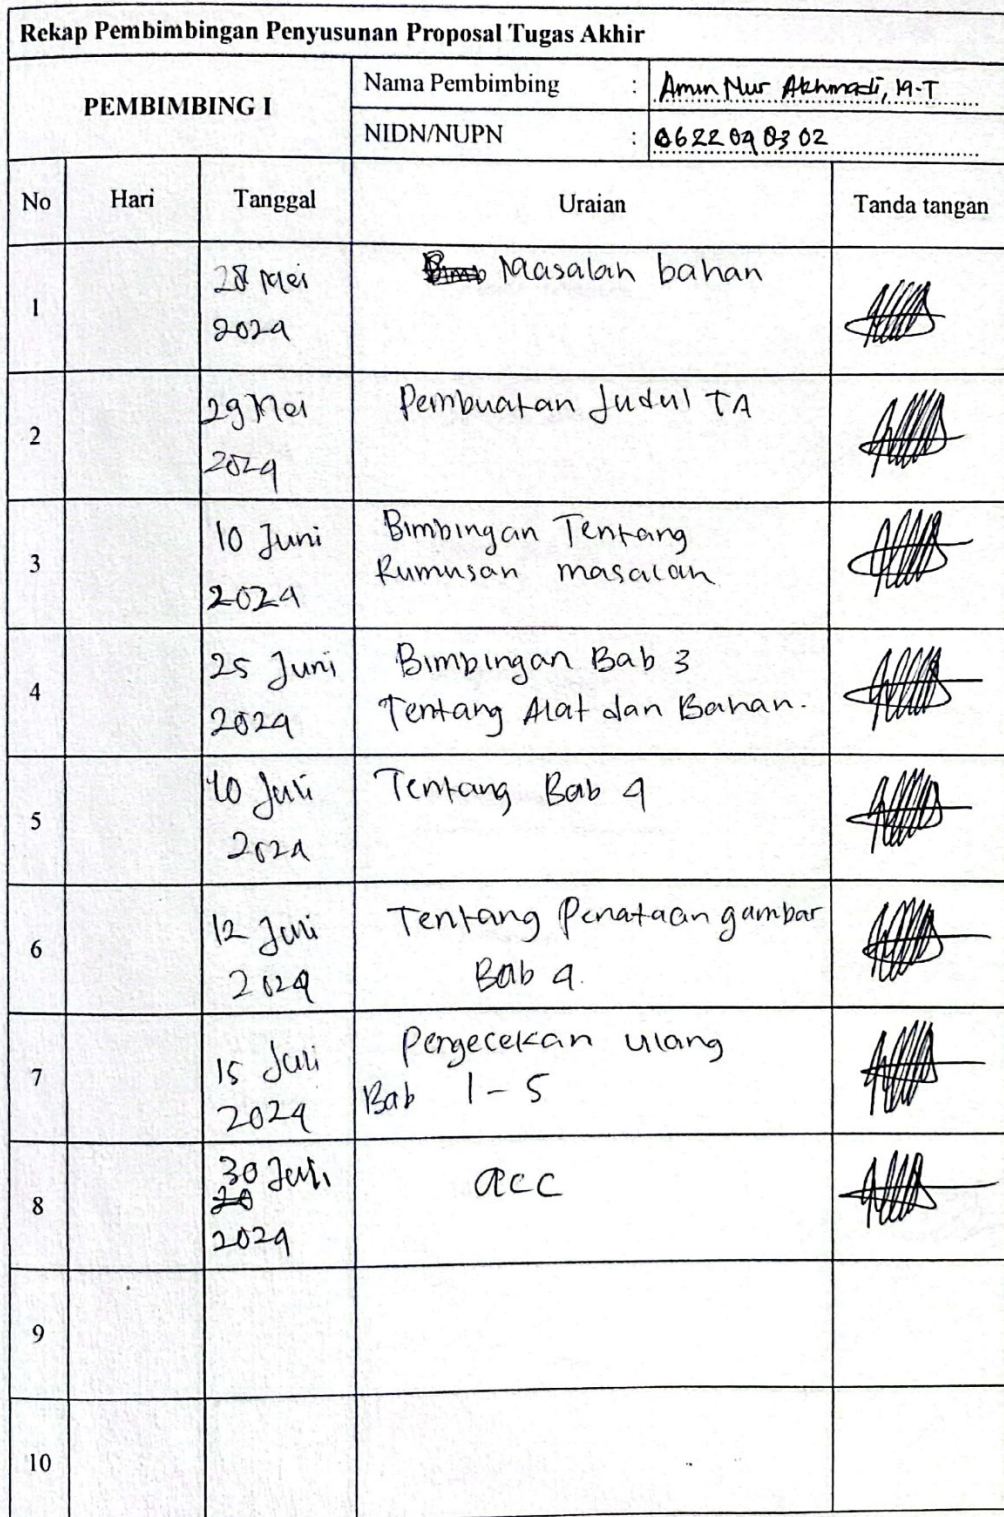 Rekap Pembimbingan Penyusunan Proposal Tugas Akhir
PEMBIMBING I
Nama Pembimbing : Amin Nur Akhmadi, M.T
NIDN/NUPN : 0622090302
No Hari Tanggal Uraian Tanda tangan
1 28 Mei Masalah bahan
2024
2 29 Mei Pembuatan Judul TA
2024
3 10 Juni Bimbingan Tentang
2024 Rumusan masalah
4 25 Juni Bimbingan Bab 3
2024 Tentang Alat dan Bahan.
5 10 Juli Tentang Bab 4
2024
6 12 Juli Tentang Penataan gambar
2024 Bab 4.
7 15 Juli Pengecekan ulang
2024 Bab 1-5
8 30 Juli acc
20
2024
9
10